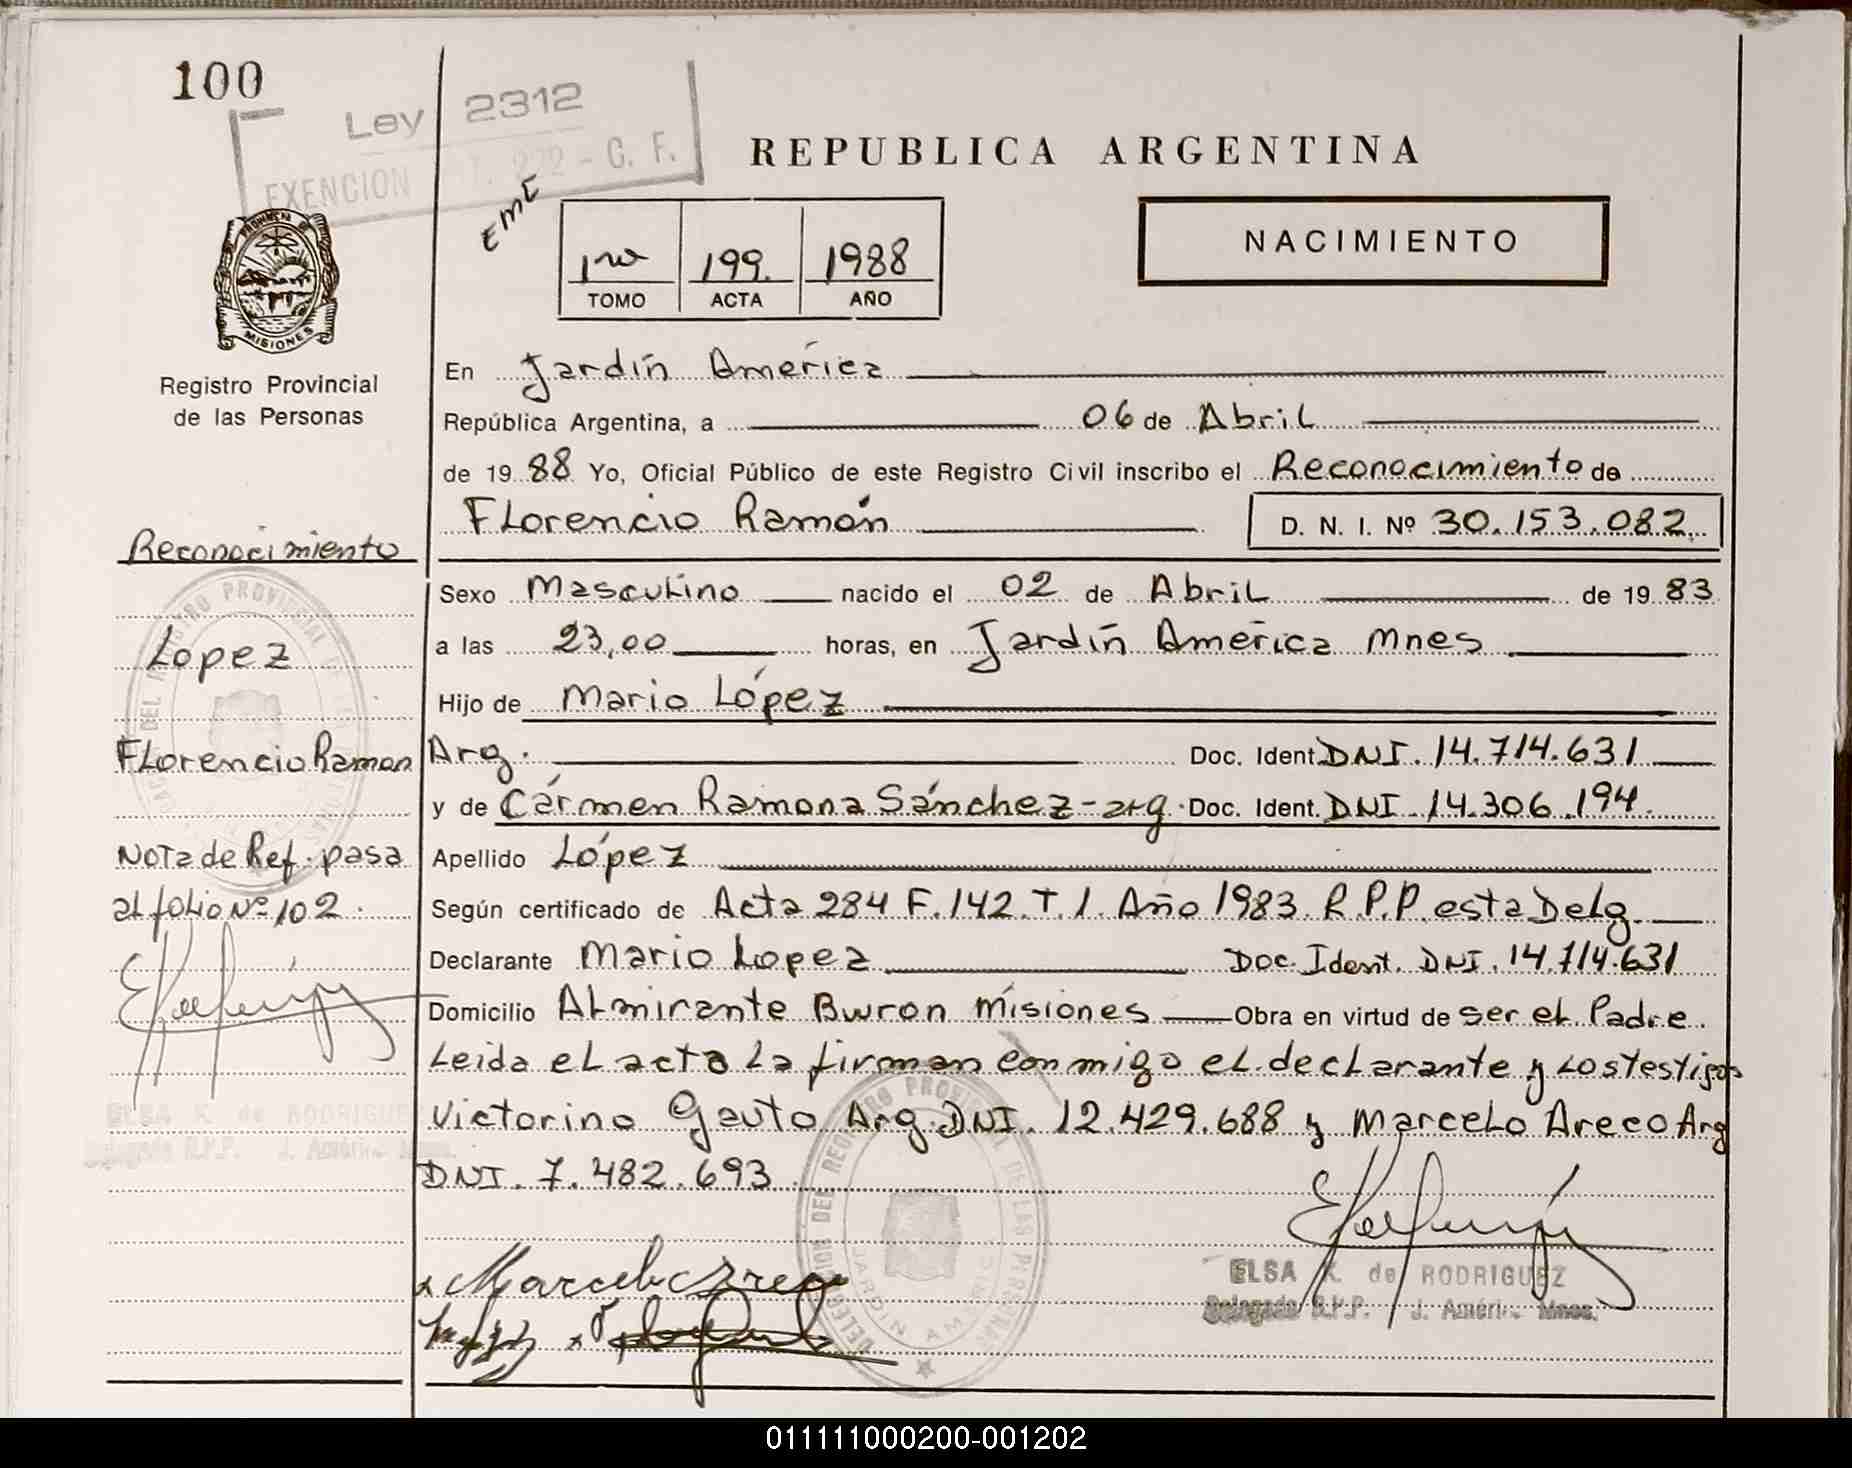 100
Ley 2312
EXENCION
222 - C. F.
REPUBLICA ARGENTINA
NACIMIENTO
199. 1988
TOMO ACTA AÑO
MISIONES
Registro Provincial
de las Personas
En Jardín América
República Argentina, a 06 de Abril
de 1988 Yo, Oficial Público de este Registro Civil inscribo el Reconocimiento de
Florencio Ramón D. N. I. Nº 30.153.082
Reconocimiento
Lopez
Florencio Ramon
Nota de Ref. pasa
al folio Nº 102.
ELSA K. de RODRIGUEZ
Delegada R.P.P. J. Améri. Mnes.
Sexo Masculino nacido el 02 de Abril de 1983
a las 23,00 horas, en Jardín América Mnes
Hijo de Mario López
Arg. Doc. Ident. DNI. 14.714.631
y de Cármen Ramona Sánchez - arg. Doc. Ident. DNI. 14.306.194.
Apellido López
Según certificado de Acta 284 F. 142. T. 1. Año 1983. R.P.P. esta Delg.
Declarante Mario Lopez Doc. Ident. DNI. 14.714.631
Domicilio Almirante Bwron Misiones Obra en virtud de ser el Padre.
Leida el acta la firman conmigo el declarante y los testigos
Victorino Gauto Arg. DNI. 12.429.688 y Marcelo Areco Arg
DNI. 7.482.693
DELEGACION DEL REGISTRO PROVINCIAL DE LAS PERSONAS
JARDIN AMERICA
ELSA K. de RODRIGUEZ
Delegada R.P.P. J. Améri. Mnes.
011111000200-001202